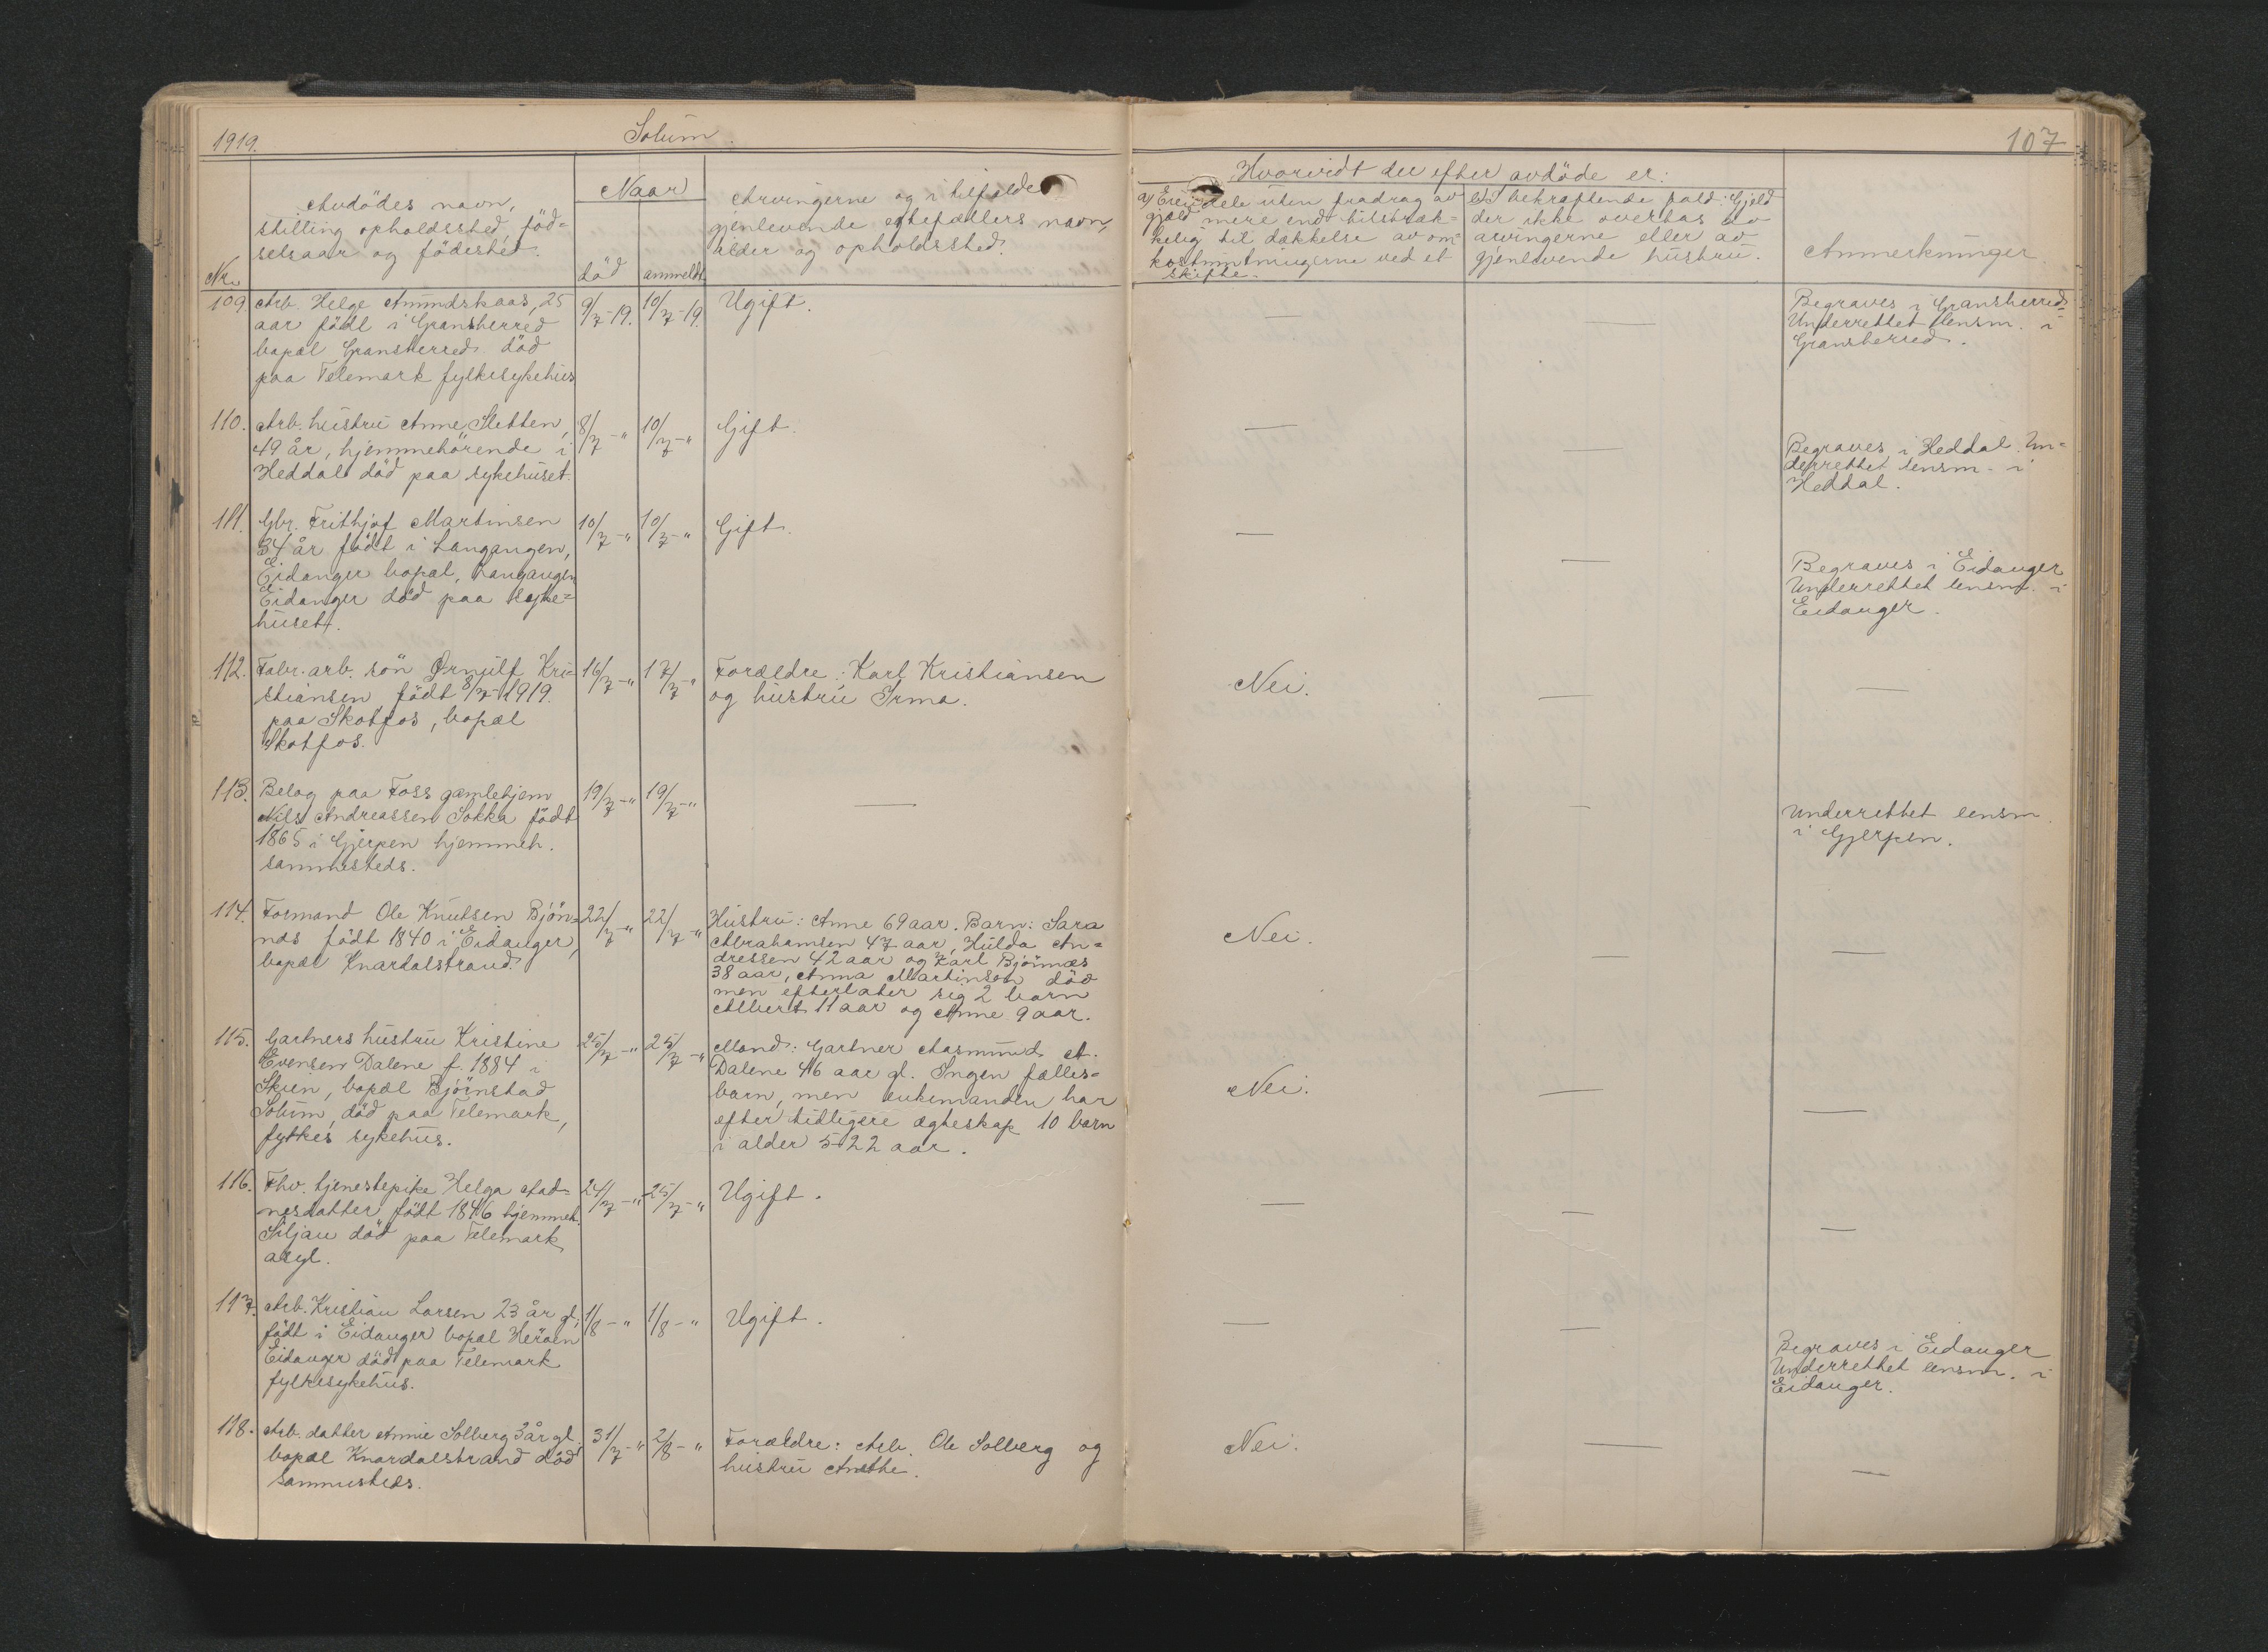 1919.
Solum.
107
Nr.
Avdödes navn,
stilling opholdssted, föd=
selsaar og födested.
Naar
död
anmeldt
Arvingerne og i tilfælde
gjenlevende egtefællers navn,
alder og opholdssted.
Hvorvidt der efter avdöde er:
a) Eiendele uten fradrag av
gjæld mere end tilstræk=
kelig til dækkelse av om=
kostningerne ved et
skifte.
b) I bekræftende fald: Gjeld
der ikke overtas av
arvingerne eller av
gjenlevende hustru.
Anmerkninger.
109.
Arb. Helge Amundskaas, 25
aar födt i Gransherred
bopæl Gransherred död
paa Telemark fylkesykehus
9/7-19.
10/7-19.
Ugift.
—
—
Begraves i Gransherred
Underrettet lensm. i
Gransherred.
110.
Arb. hustru Anne Sletten,
49 år, hjemmehörende i
Heddal död paa sykehuset.
8/7-"
10/7-"
Gift.
—
—
Begraves i Heddal. Un=
derrettet lensm. i
Heddal.
111.
Gbr. Frithjof Martinsen
34 år födt i Langangen,
Eidanger bopæl, Langangen
Eidanger död paa syke=
huset.
10/7-"
10/7-"
Gift.
—
—
Begraves i Eidanger
Underrettet lensm. i
Eidanger.
112.
Fabr. arb. sön Ørnulf Kri=
stiansen födt 8/7-1919.
paa Skotfos, bopæl
Skotfos.
16/7-"
17/7-"
Forældre: Karl Kristiansen
og hustru Irma.
Nei.
—
—
113.
Belag paa Foss gamlehjem
Nils Andreassen Sokka födt
1865 i Gjerpen hjemmeh.
sammesteds.
19/7-"
19/7-"
—
—
Underrettet lensm.
i Gjerpen.
114.
Formand Ole Knutsen Bjön=
nes födt 1840 i Eidanger,
bopæl Knardalstrand.
22/7-"
22/7-"
Hustru: Anne 69 aar. Barn: Sara
Abrahamsen 47 aar, Hulda An=
dressen 42 aar og Karl Bjönnes
38 aar, Anna Martinsen död
men efterlater sig 2 barn
Albert 11 aar og Anne 9 aar.
Nei.
—
—
115.
Gartners hustru Kristine
Evensen Dalene f. 1884 i
Skien, bopæl Bjørnstad
Solum, död paa Telemark,
fylkes sykehus.
25/7-"
25/7-"
Mand: Gartner Aasmund A.
Dalene 46 aar gl. Ingen fælles=
barn, men enkemanden har
efter tidligere ægteskap 10 barn
i alder 5-22 aar.
Nei.
—
116.
Fhv. tjenestepike Helga Aad=
nesdatter födt 1846 hjemmeh.
Siljan död paa Telemark
asyl.
24/7-"
25/7-"
Ugift.
—
—
—
117.
Arb. Kristian Larsen 23 år gl.
födt i Eidanger bopæl Heröen
Eidanger död paa Telemark
fylkesykehus.
1/8-"
1/8-"
Ugift.
—
—
Begraves i Eidanger
Underrettet lensm. i
Eidanger.
118.
Arb. datter Annie Solberg 3 år gl.
bopæl Knardalstrand död
sammesteds.
31/7-"
2/8-"
Forældre: Arb. Ole Solberg og
hustru Anethe.
Nei.
—
—